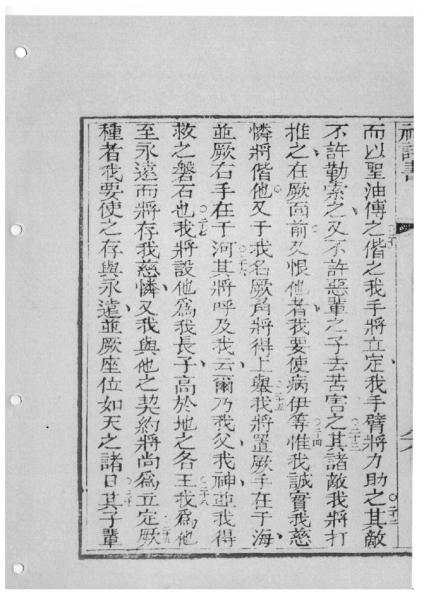 神詩書
而以聖油傅之偕之我手將立定我手臂將力助之其敵
不許勒索之又不許惡輩之子去苦害之其諸敵我將打
推之在厥面前及恨他者我要使病伊等惟我誠實我慈
憐將偕他又于我名厥角將得上舉我將置厥手在于海
並厥右手在于河其將呼及我云爾乃我父我神並我得
救之磐石也我將設他為我長子高於地之各王我爲他
至永遠而將存我慈憐又我與他之契約將尚爲立定厥
種者我要使之存與永遠並厥座位如天之諸日其子輩